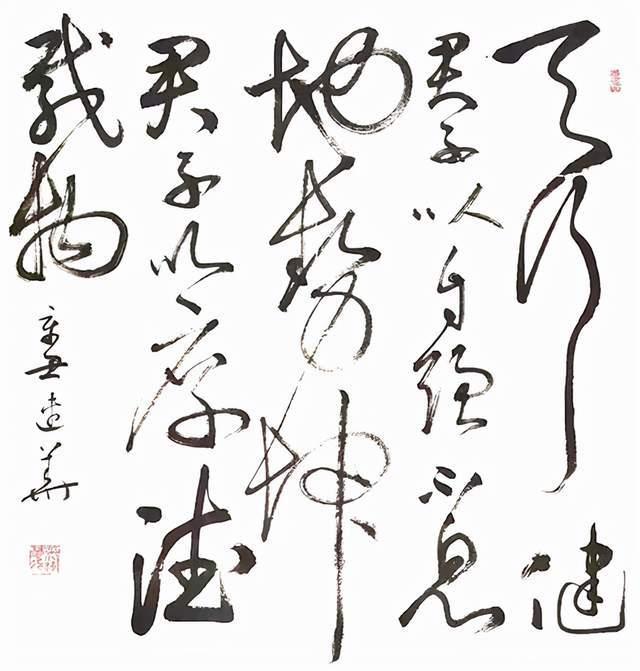 天行健
君子以自强不息
地勢坤
君子以厚德
載物
辛丑